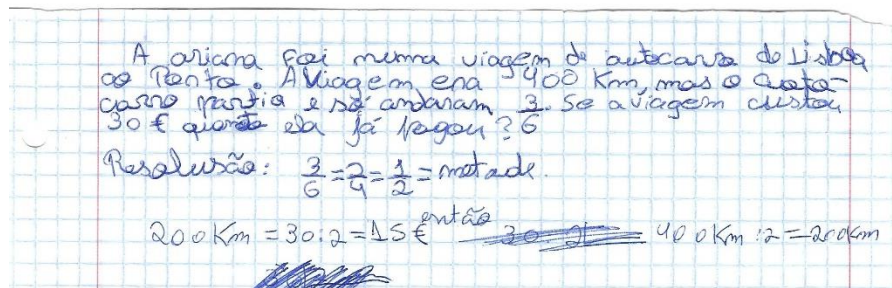 A ariana foi numa viagem de autocarro de Lisboa
ao Porto. A Viagem era 400 Km, mas o auto-
carro partia e só andaram 3/6. Se a viagem custou
30 € quanto ela já pagou?
Resolusão: 3/6 = 2/4 = 1/2 = metade.
200 Km = 30:2 = 15 € então 400 Km :2 = 200 Km